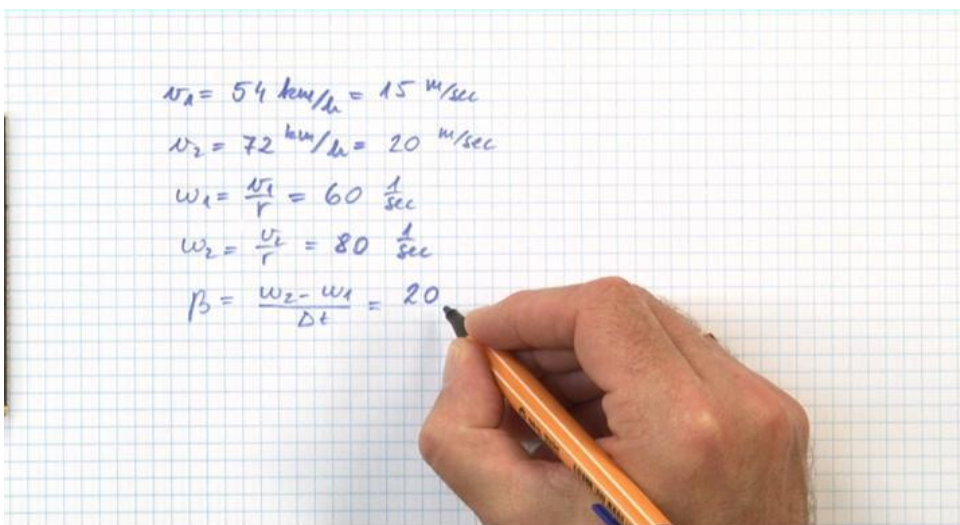 v₁ = 54 km/h = 15 m/sec
v₂ = 72 km/h = 20 m/sec
ω₁ = v₁/r = 60 1/sec
ω₂ = v₂/r = 80 1/sec
β = ω₂ - ω₁/Δt = 20